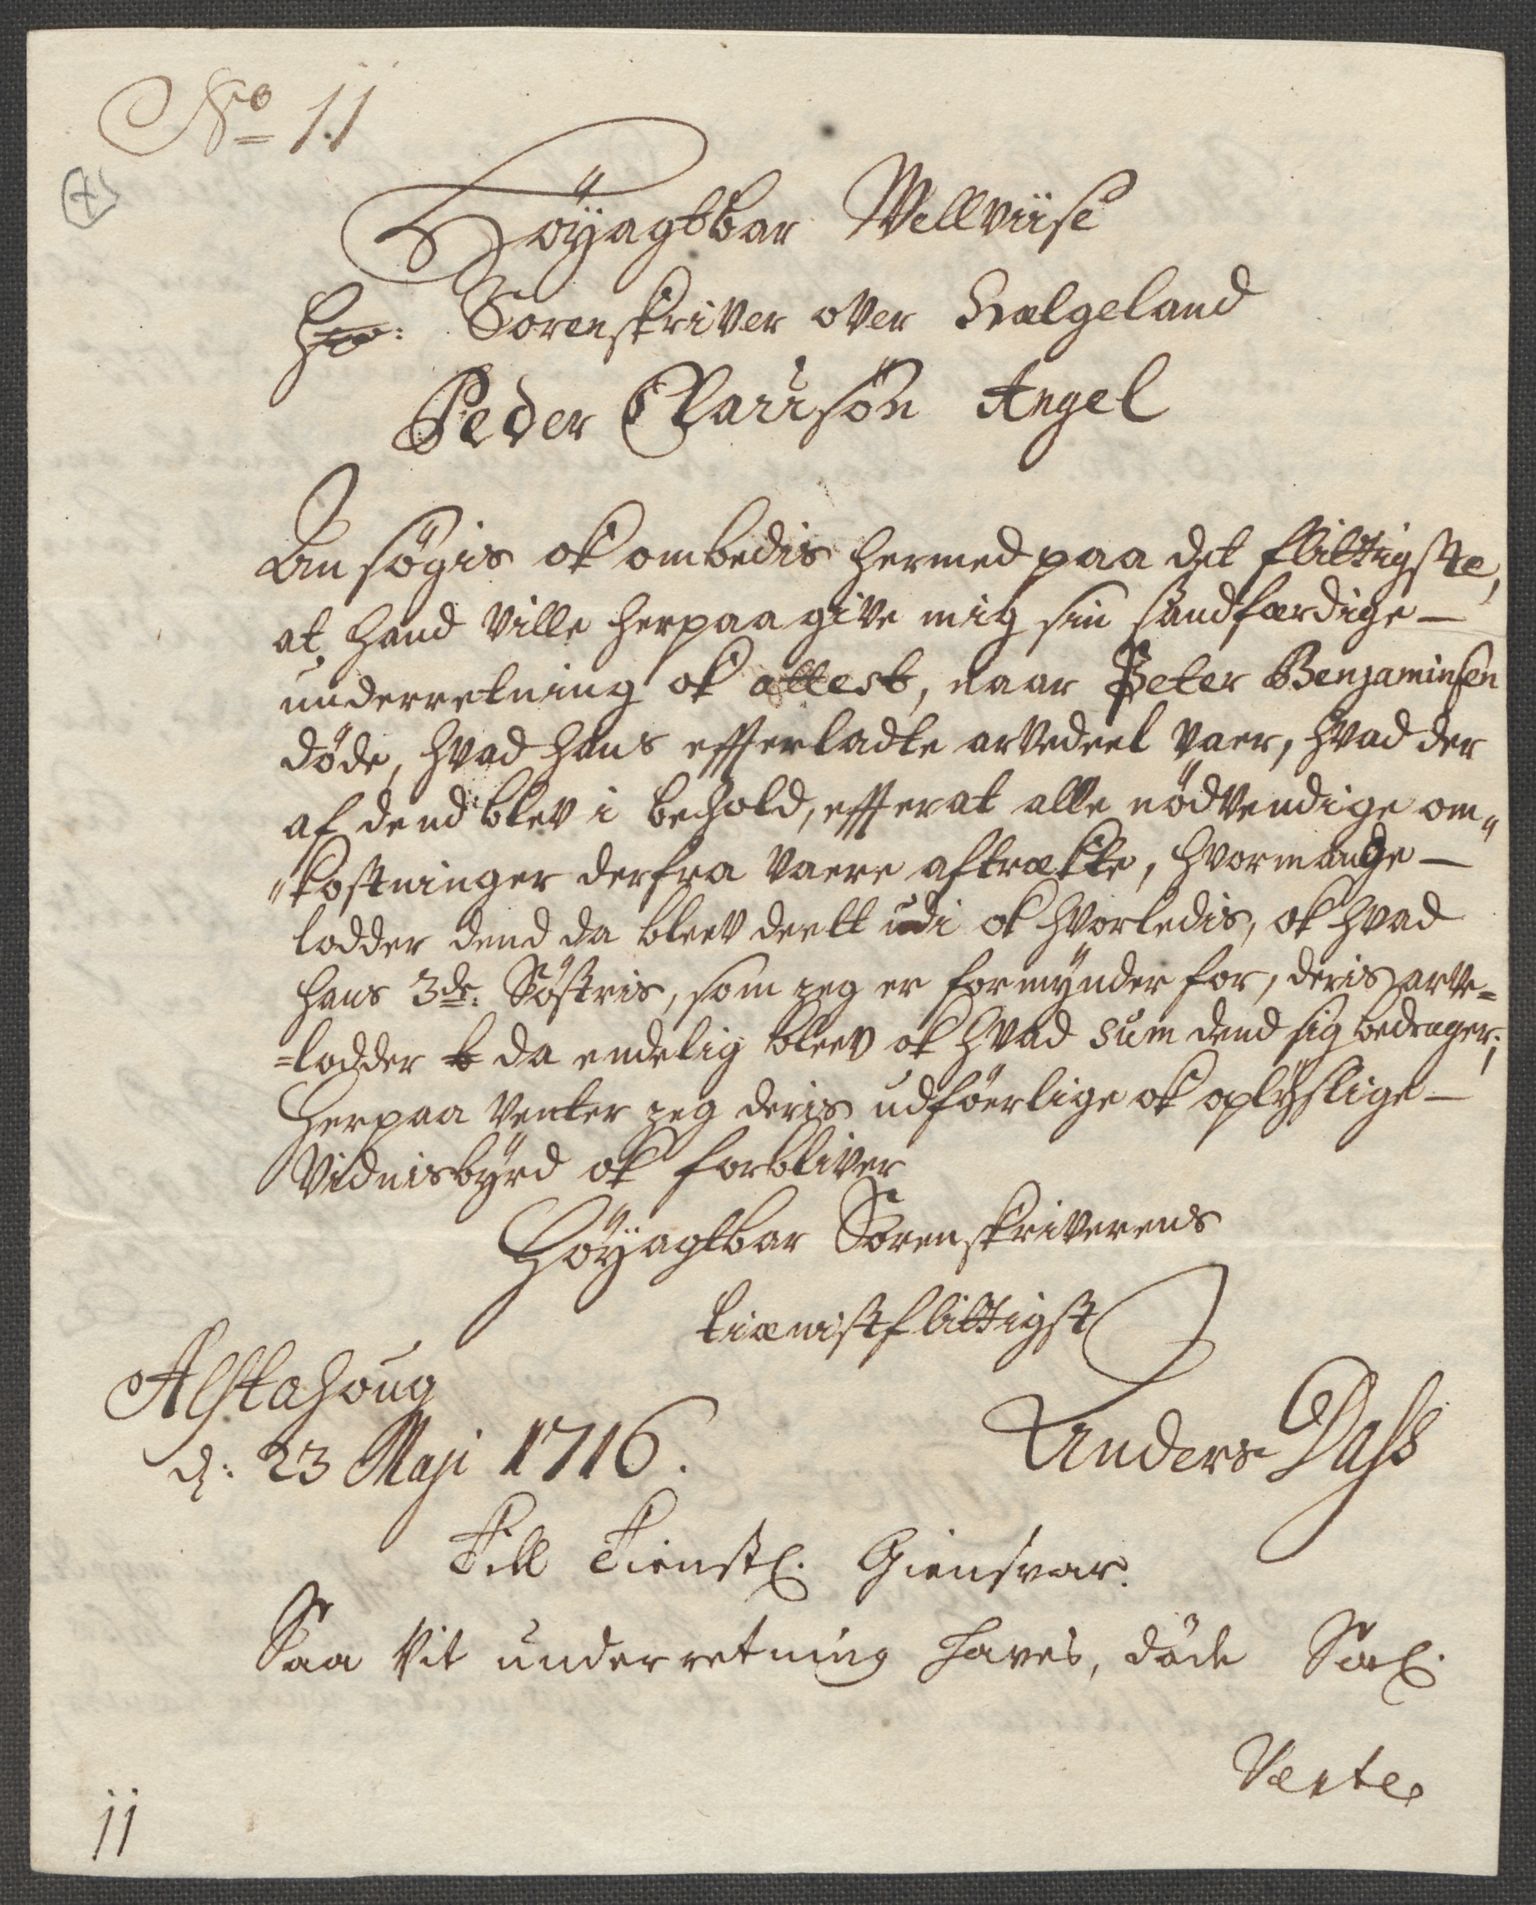 No 11
Höyagtbar Wellviise
Hr: Sorenskriver over Hælgeland
Peder Clausön Angel
Ansögis ok ombedis hermed paa det flittigste,
at hand ville herpaa give mig sin sandfærdige —
underretning ok attest, naar Peter Benjaminsen
döde, hvad hans efterladte arvedeel vaer, hvad der
af dend blev i behold, efterat alle nödvendige om„
„kostninger derfra vaere aftrækte, hvormange —
lodder dend da bleev deelt udi ok hvorledis, ok hvad
hans 3de: Söstris, som jeg er formynder for, deris arve=
=lodder da endelig bleev ok hvad Sum dend sig bedrager;
Herpaa venter jeg deris udföerlige ok oplyslige —
Vidnisbyrd ok forbliver
Höyagtbar Sorenskriverens
tienistflittigst
Alstahoug
d: 23 Maji 1716.
Anders Dass
Till tienstl. Giensvar.
Saa vit underretning haves, döde Sal.
Verte
11